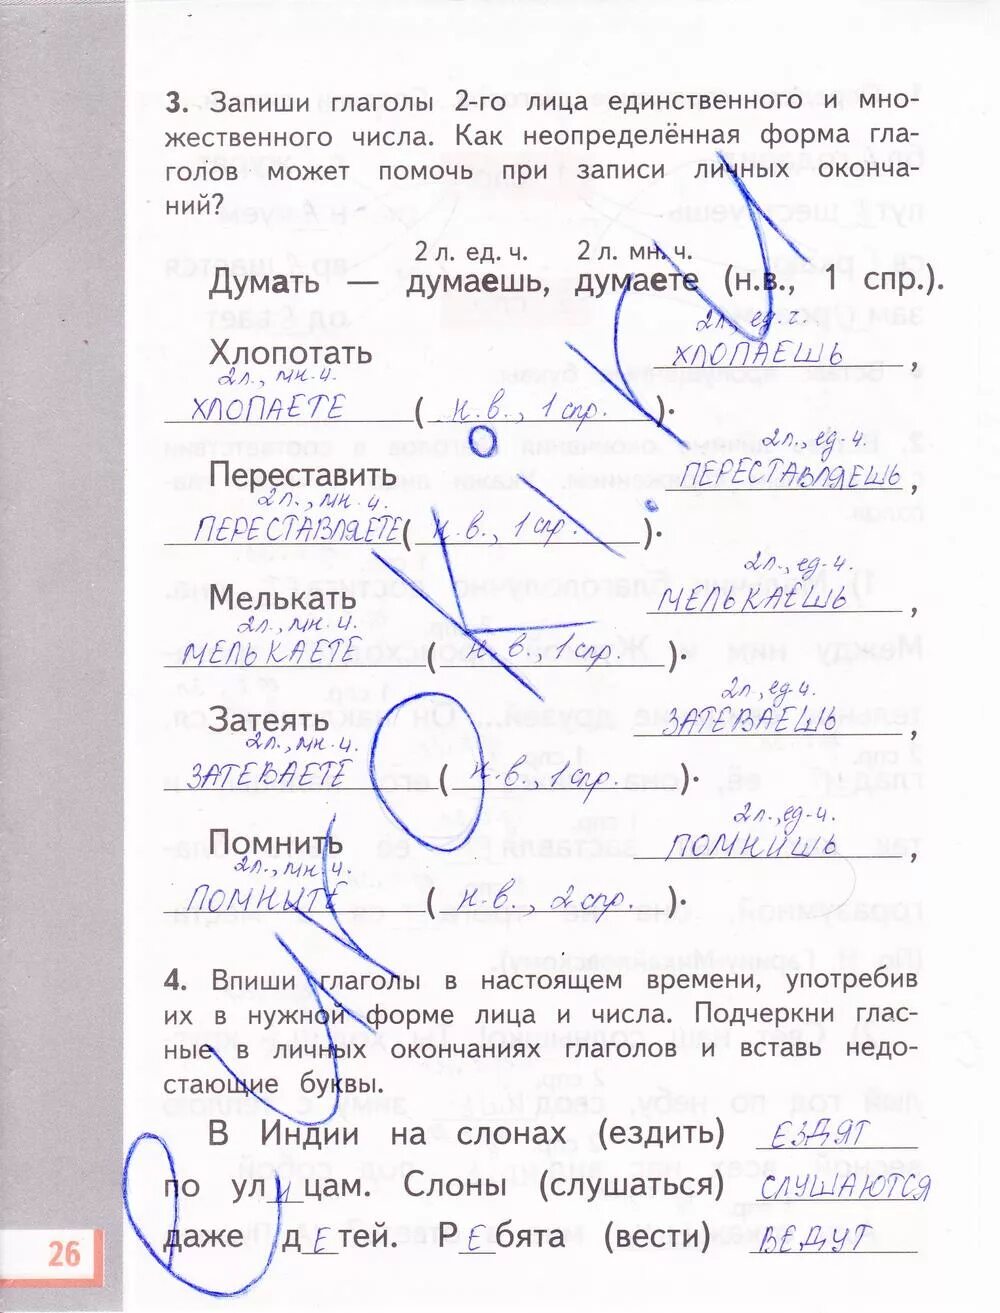 3. Запиши глаголы 2-го лица единственного и мно-
жественного числа. Как неопределённая форма гла-
голов может помочь при записи личных оконча-
ний?
2 л. ед. ч. 2 л. мн. ч.
Думать — думаешь, думаете (н.в., 1 спр.).
2л., ед.ч.
Хлопотать ХЛОПАЕШЬ,
2л., мн.ч.
ХЛОПАЕТЕ (н.в., 1 спр.).
2л., ед.ч.
Переставить ПЕРЕСТАВЛЯЕШЬ,
2л., мн.ч.
ПЕРЕСТАВЛЯЕТЕ (н.в., 1 спр.).
2л., ед.ч.
Мелькать МЕЛЬКАЕШЬ,
2л., мн.ч.
МЕЛЬКАЕТЕ (н.в., 1 спр.).
2л., ед.ч.
Затеять ЗАТЕВАЕШЬ,
2л., мн.ч.
ЗАТЕВАЕТЕ (н.в., 1 спр.).
2л., ед.ч.
Помнить ПОМНИШЬ,
2л., мн.ч.
ПОМНИТЕ (н.в., 2 спр.).
4. Впиши глаголы в настоящем времени, употребив
их в нужной форме лица и числа. Подчеркни глас-
ные в личных окончаниях глаголов и вставь недо-
стающие буквы.
В Индии на слонах (ездить) ЕЗДЯТ
по улицам. Слоны (слушаться) СЛУШАЮТСЯ
даже дЕтей. РЕбята (вести) ВЕДУТ
26